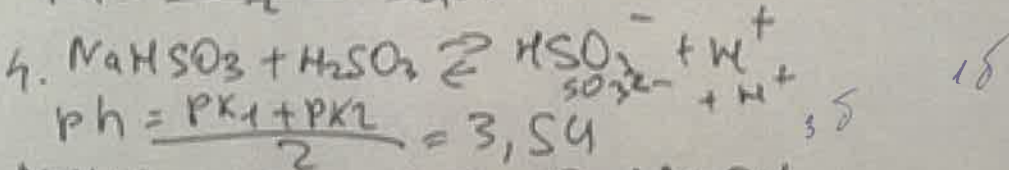 4. NaHSO3 + H2SO3 ⇄ HSO3⁻ + H⁺ 1б
SO3²⁻ + H⁺
ph = pK1 + pK2 / 2 = 3,54 3б